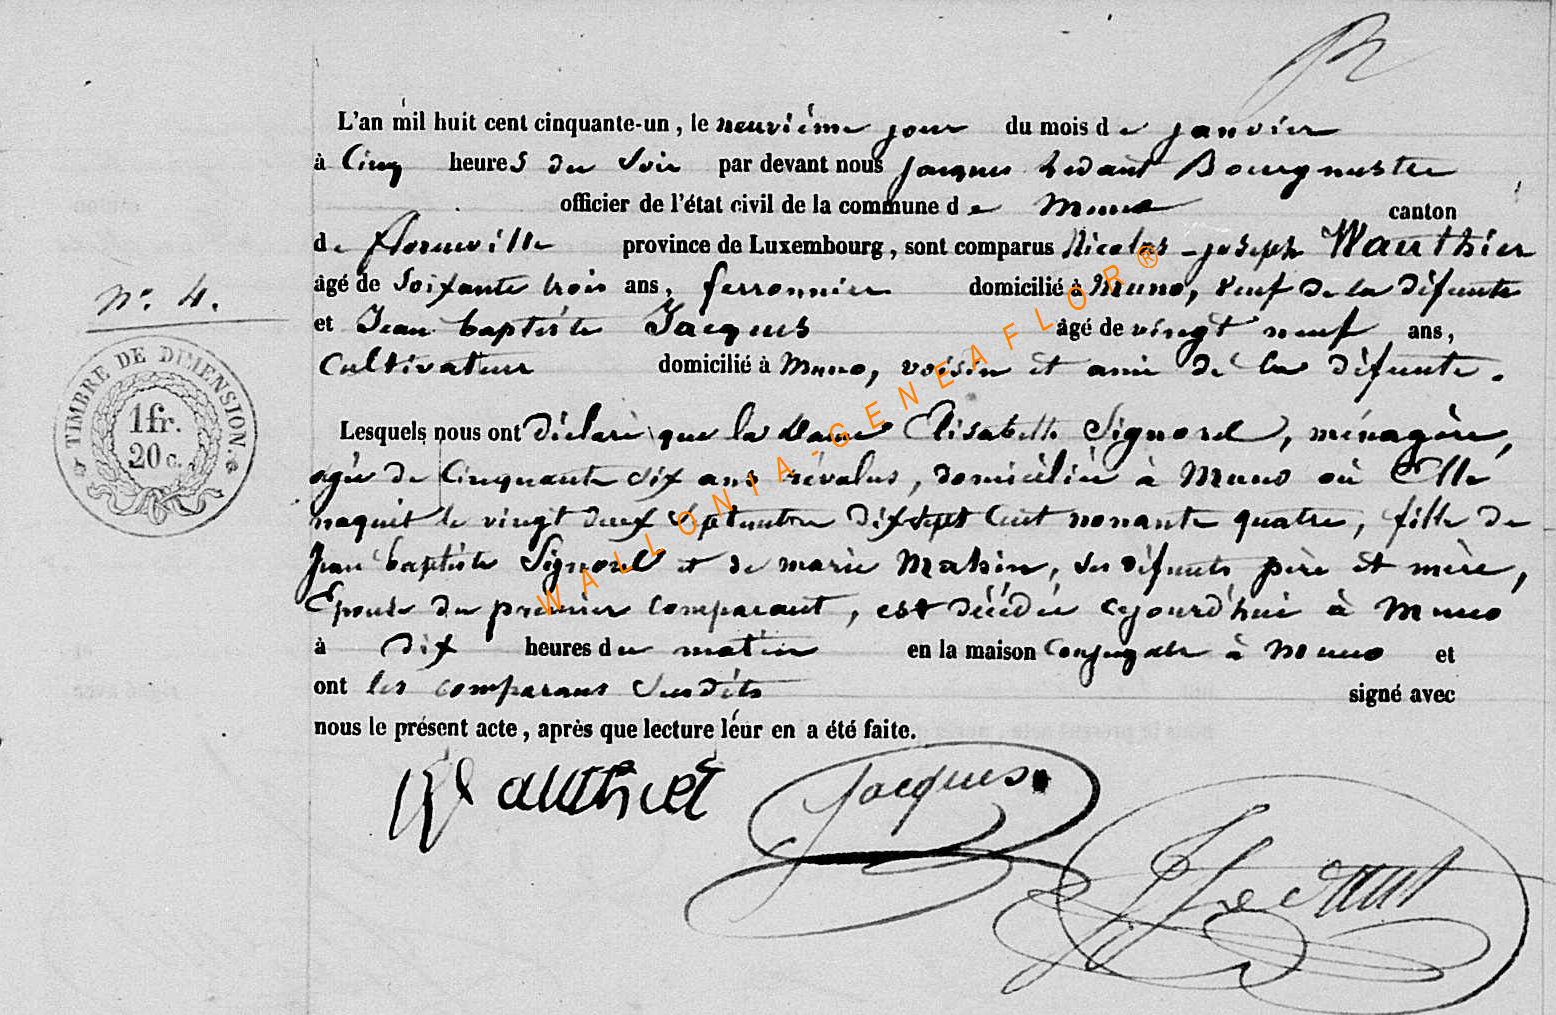 L'an mil huit cent cinquante-un, le neuvième jour du mois de janvier
à Cinq heures du Soir par devant nous Jacques Ledant Bourgmestre
officier de l'état civil de la commune de Muno canton
de florenville province de Luxembourg, sont comparus Nicolas-joseph Wauthier
âgé de Soixante trois ans, ferronnier domicilié à Muno, veuf de la défunte
N° 4.
et Jean baptiste Jacques âgé de vingt neuf ans,
Cultivateur domicilié à Muno, voisin et ami de la défunte.
TIMBRE DE DIMENSION.
1 fr.
20 c.
Lesquels nous ont déclaré que la dame Elisabeth Signorel, ménagère,
agée de Cinquante six ans révolus, domiciliée à Muno où Elle
naquit le vingt deux Septembre dixsept Cent nonante quatre, fille de
Jean baptiste Signorel et de marie Mahin, ses défunts père et mère,
Epouse du premier comparant, est décédée cejourd'hui à Muno
à dix heures du matin en la maison Conjugale à Muno et
ont les comparans susdits signé avec
nous le présent acte, après que lecture leur en a été faite.
Wauthier Jacques
J Ledant
WALLONIA-GENEAFLOR®